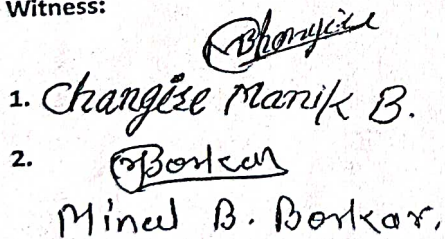 Witness:
1. Changire Manik B.
2. Borkar
Minal B. Borkar.